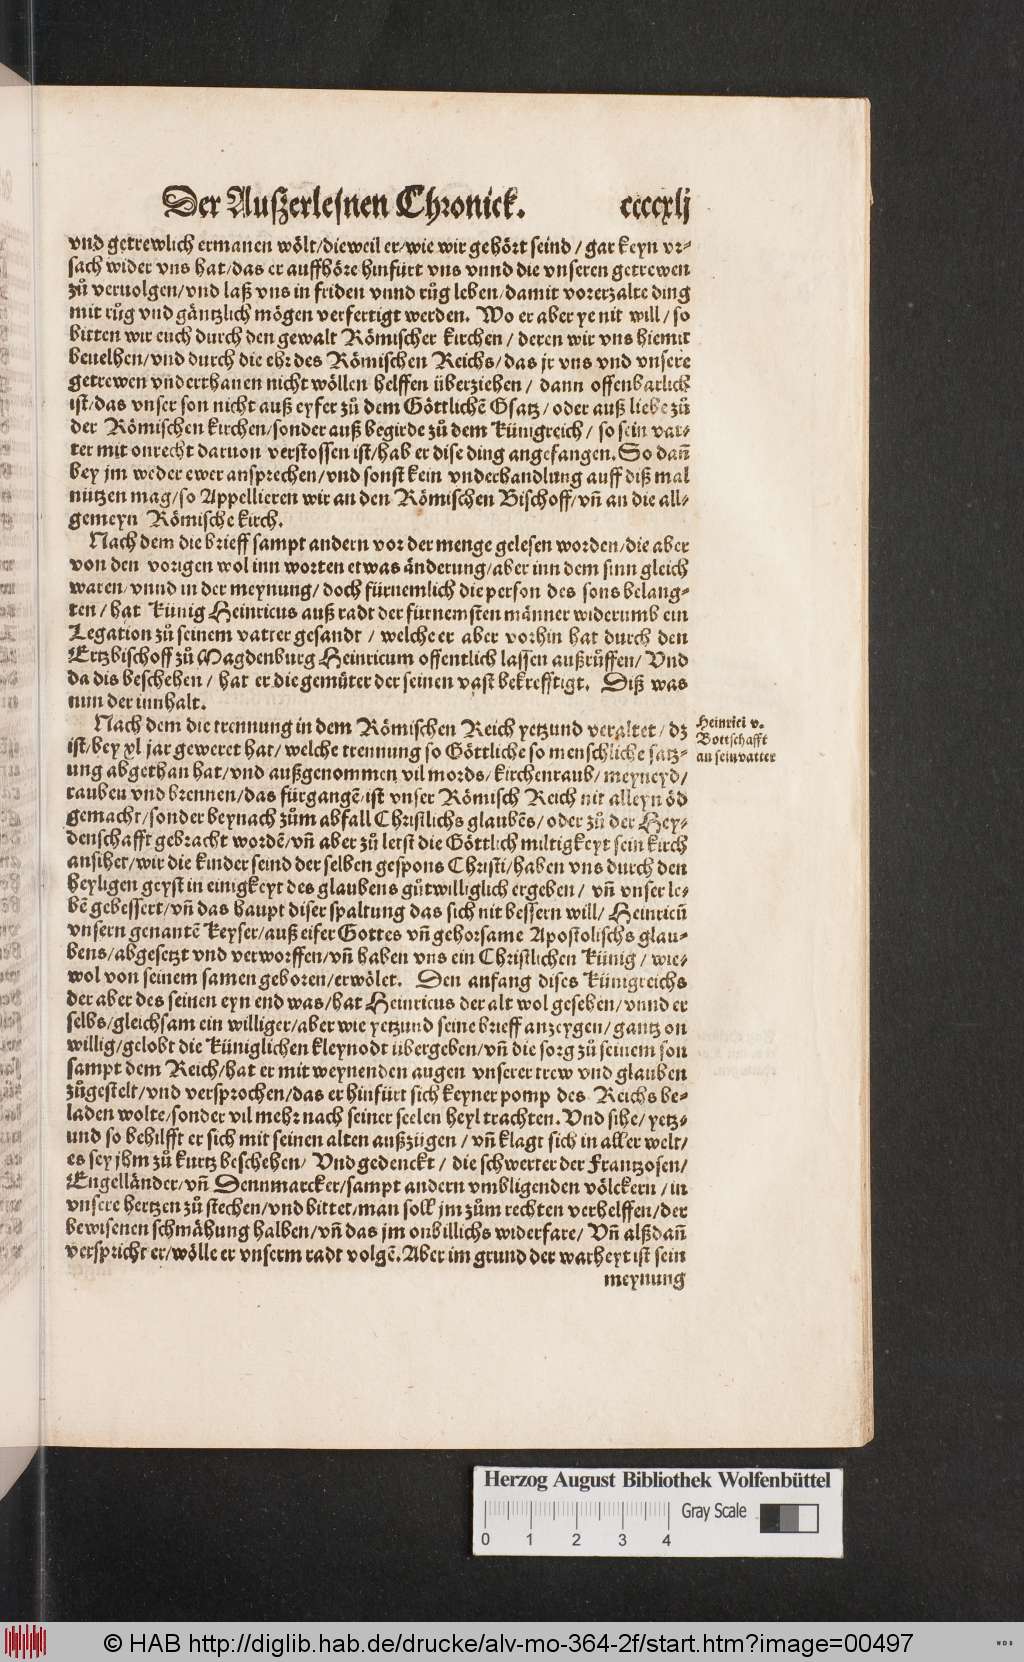 Der Außerlesnen Chronick. ccccxlj
vnd getrewlich ermanen wölt/dieweil er/wie wir gehört seind/gar keyn vr⸗
sach wider vns hat/das er auffhöre hinfürt vns vnnd die vnseren getrewen
zů veruolgen/vnd laß vns in friden vnnd růg leben/damit vorerzalte ding
mit růg vnd gäntzlich mögen verfertigt werden. Wo er aber ye nit will/so
bitten wir euch durch den gewalt Römischer kirchen/deren wir vns hiemit
beuelhen/vnd durch die ehr des Römischen Reichs/das jr vns vnd vnsere
getrewen vnderthanen nicht wöllen helffen überziehen/dann offenbarlich
ist/das vnser son nicht auß eyfer zů dem Göttlichẽ Gsatz/oder auß liebe zů
der Römischen kirchen/sonder auß begirde zů dem Künigreich/so sein vat⸗
ter mit onrecht daruon verstossen ist/hab er dise ding angefangen. So dañ
bey jm weder ewer ansprechen/vnd sonst kein vnderhandlung auff diß mal
nützen mag/so Appellieren wir an den Römischen Bischoff/vñ an die all⸗
gemeyn Römische kirch.
Nach dem die brieff sampt andern vor der menge gelesen worden/die aber
von den vorigen wol inn worten etwas änderung/aber inn dem sinn gleich
waren/vnnd in der meynung/doch fürnemlich die person des sons belang⸗
ten/hat Künig Heinricus auß radt der fürnemsten männer widerumb ein
Legation zů seinem vatter gesandt/welche er aber vorhin hat durch den
Ertzbischoff zů Magdenburg Heinricum offentlich lassen außrůffen/Vnd
da dis beschehen/hat er die gemüter der seinen vast bekrefftigt. Diß was
nun der innhalt.
Nach dem die trennung in dem Römischen Reich yetzund veraltet/dz
ist/bey xl jar geweret hat/welche trennung so Göttliche so menschliche satz⸗
ung abgethan hat/vnd außgenommen vil mords/kirchenraub/meyneyd/
rauben vnd brennen/das fürgangẽ/ist vnser Römisch Reich nit alleyn öd
gemacht/sonder beynach zům abfall Christlichs glaubẽs/oder zů der Hey⸗
denschafft gebracht wordẽ/vñ aber zů letst die Göttlich miltigkeyt sein kirch
ansihet/wir die kinder seind der selben gespons Christi/haben vns durch den
heyligen geyst in einigkeyt des glaubens gůtwilliglich ergeben/vñ vnser le⸗
bẽ gebessert/vñ das haupt diser spaltung das sich nit bessern will/Heinricũ
vnsern genantẽ Keyser/auß eifer Gottes vñ gehorsame Apostolischs glau⸗
bens/abgesetzt vnd verworffen/vñ haben vns ein Christlichen Künig/wie⸗
wol von seinem samen geboren/erwölet. Den anfang dises Künigreichs
der aber des seinen eyn end was/hat Heinricus der alt wol gesehen/vnnd er
selbs/gleichsam ein williger/aber wie yetzund seine brieff anzeygen/gantz on
willig/gelobt die Küniglichen kleynodt übergeben/vñ die sorg zů seinem son
sampt dem Reich/hat er mit weynenden augen vnserer trew vnd glauben
zůgestelt/vnd versprochen/das er hinfürt sich keyner pomp des Reichs be⸗
laden wolte/sonder vil mehr nach seiner seelen heyl trachten. Vnd sihe/yetz⸗
und so behilfft er sich mit seinen alten außzügen/vñ klagt sich in aller welt/
es sey jhm zů kurtz beschehen/Vnd gedenckt/die schwerter der Frantzosen/
Engelländer/vñ Dennmarcker/sampt andern vmbligenden völckern/in
vnsere hertzen zů stechen/vnd bittet/man soll jm zům rechten verhelffen/der
bewisenen schmähung halben/vñ das jm onbillichs widerfare/Vñ alßdañ
verspricht er/wölle er vnserm radt volgẽ. Aber im grund der warheyt ist sein
meynung
Heinrici v.
Bottschafft
an sein vatter
Herzog August Bibliothek Wolfenbüttel
Gray Scale
0 1 2 3 4
© HAB http://diglib.hab.de/drucke/alv-mo-364-2f/start.htm?image=00497